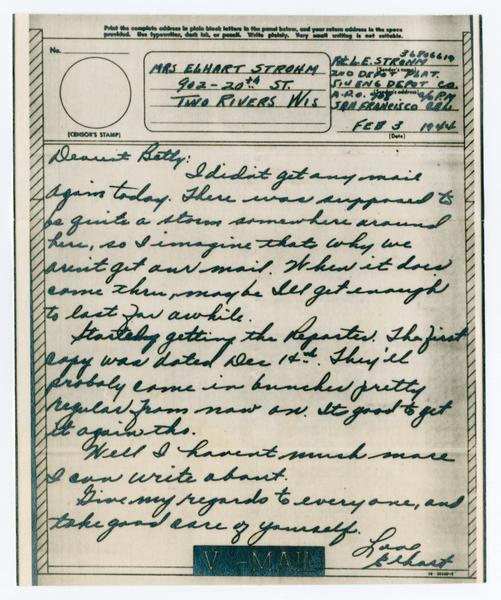 Print the complete address in plain block letters in the panel below, and your return address in the space
provided. Use typewriter, dark ink, or pencil. Write plainly. Very small writing is not suitable.
No.
(CENSOR'S STAMP)
MRS ELHART STROHM
902-20th ST.
TWO RIVERS WIS
36806619
Pvt L.E. STROHM
(Sender's name)
2ND DEPOT PLAT.
ENG DEPOT CO.
(Sender's address)
A.P.O.
SAN FRANCISCO CAL
FEB 3 1944
(Date)
Dearest Betty:
I didn't get any mail
again today. There was supposed to
be quite a storm somewhere around
here, so I imagine thats why we
aren't get our mail. When it does
come thru, maybe I'll get enough
to last for awhile.
Started getting the Reporter. The first
copy was dated Dec 14th. They'll
probaly come in bunches pretty
regular from now on. Its good to get
it again tho.
Well I havent much more
I can write about.
Give my regards to everyone, and
take good care of yourself.
Love
Elhart
V-MAIL